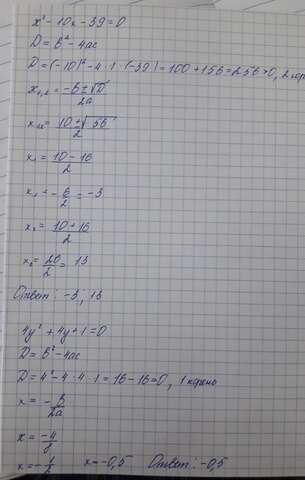 x² - 10x - 39 = 0
D = b² - 4ac
D = (-10)² - 4 · 1 · (-39) = 100 + 156 = 256 > 0, 2 кор
x₁,₂ = (-b ± √D) / 2a
x₁,₂ = (10 ± √56) / 2
x₁ = (10 - 16) / 2
x₁ = -6/2 = -3
x₂ = (10 + 16) / 2
x₂ = 26/2 = 13
Ответ: -3; 13
4y² + 4y + 1 = 0
D = b² - 4ac
D = 4² - 4 · 4 · 1 = 16 - 16 = 0, 1 корень
x = -b/2a
x = -4/8
x = -1/2 x = -0,5 Ответ: -0,5